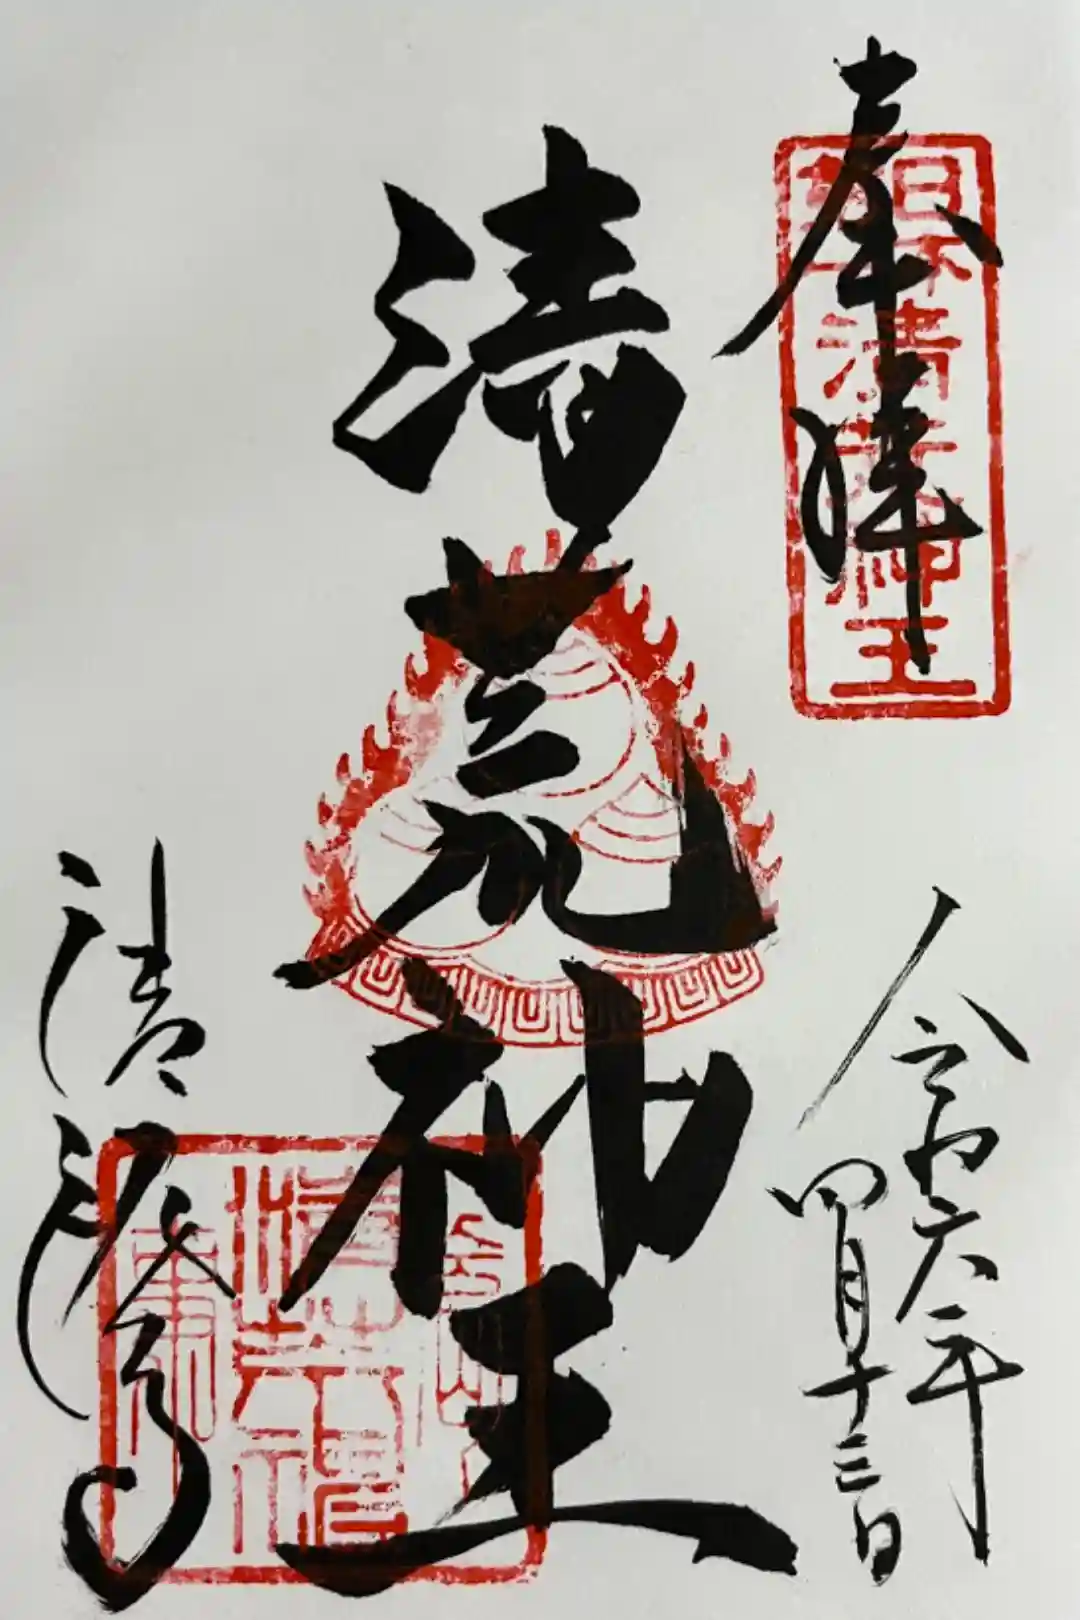 奉拝
日本
清荒神王
令和六年
四月十三日
清荒神王
清澄寺